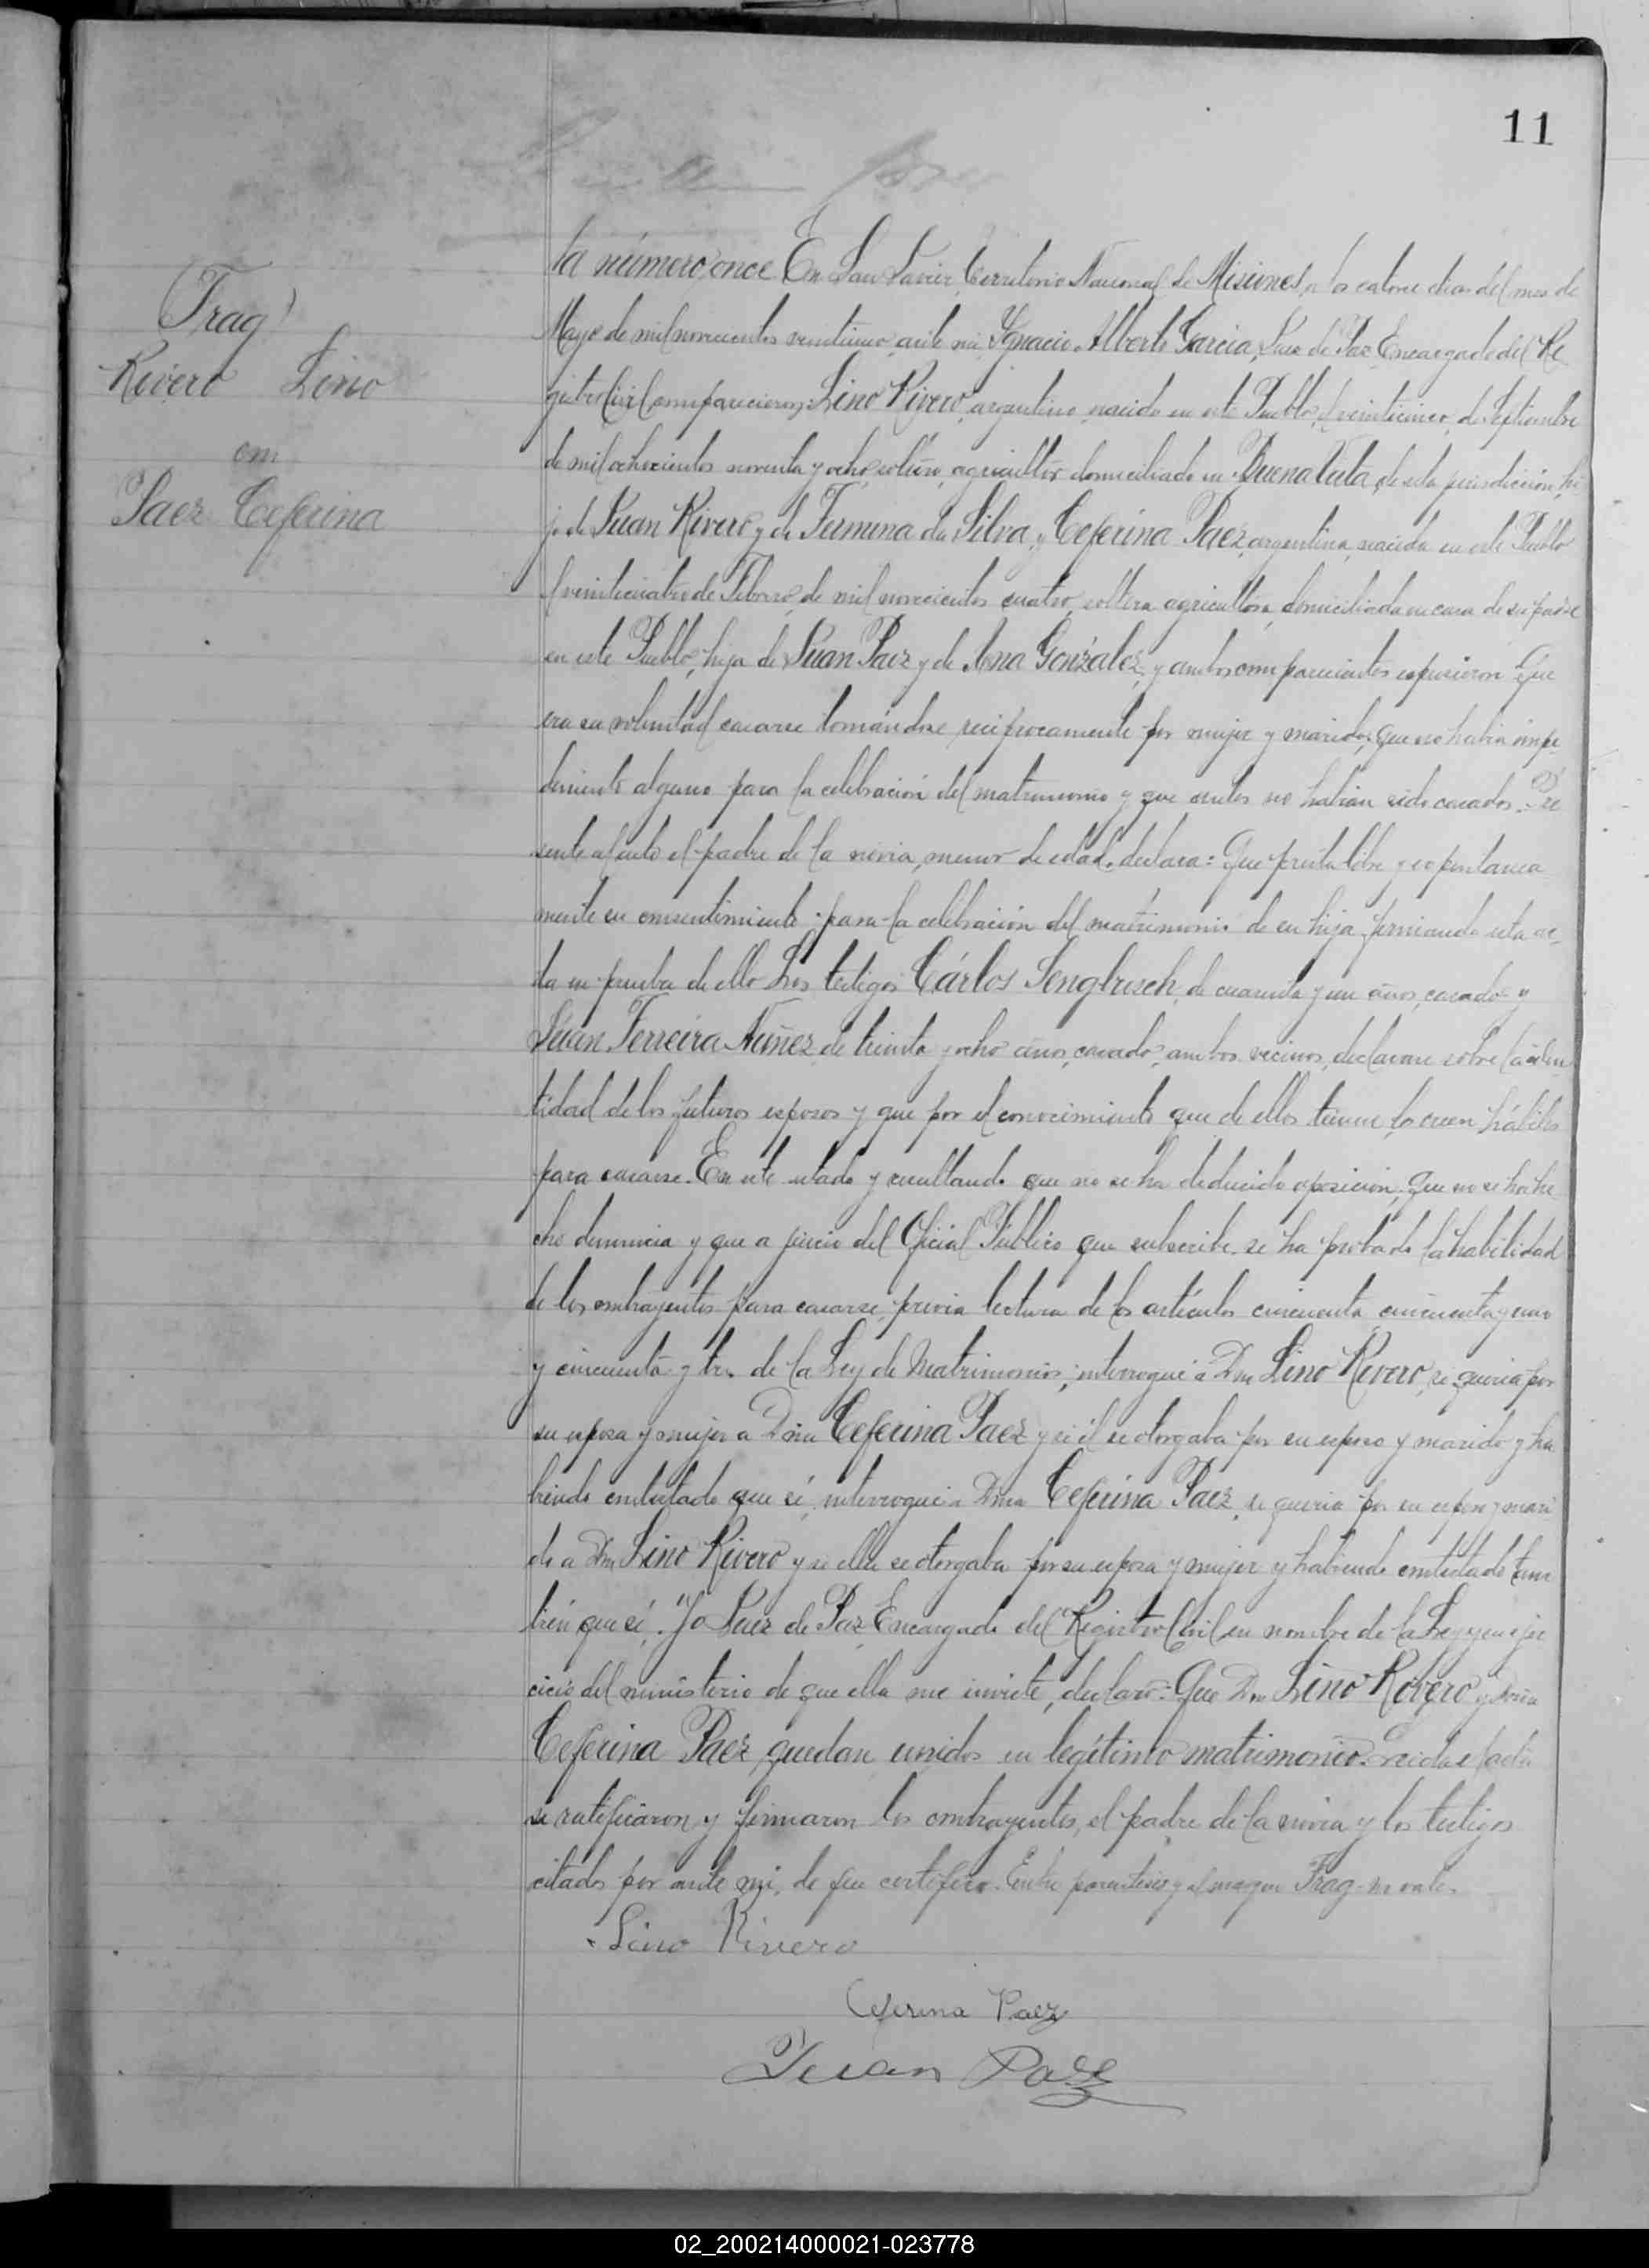 11
(Frag)
Rivero Lino
con
Paez Ceferina
ta número once En San Javier, Territorio Nacional de Misiones, a los catorce dias del mes de
Mayo de mil novecientos veintiuno, ante mi Ygnacio Alberto Garcia, Juez de Paz Encargado del Re
gistro Civil, comparecieron: Lino Rivero, argentino, nacido en este Pueblo, el veinticinco de Septiembre
de mil ochocientos noventa y ocho, soltero, agricultor, domiciliado en Buena Vista, de esta jurisdiccion, hi
jo de Juan Rivero y de Fermina da Silva, y Ceferina Paez, argentina, nacida en este Pueblo
el veinticuatro de Febrero de mil novecientos cuatro, soltera, agricultora, domiciliada en casa de su padre
en este Pueblo, hija de Juan Paez y de Ana González, y ambos comparecientes espusieron: Que
era su voluntad casarse tomándose reciprocamente por mujer y marido, que no habia impe
dimento alguno para la celebración del matrimonio y que antes no habian sido casados. Pre
sente al acto el padre de la novia, menor de edad, declara: Que presta libre y espontanea
mente su consentimiento para la celebración del matrimonio de su hija firmando esta ac
ta en prueba de ello. Los testigos Cárlos Sengbusch, de cuarenta y un años, casado y
Juan Ferreira Nuñez, de treinta y ocho años, casado, ambos vecinos, declaran sobre la iden
tidad de los futuros esposos y que por el conocimiento que de ellos tienen los creen hábiles
para casarse. En este estado y resultando que no se ha deducido oposicion, que no se ha he
cho denuncia y que a juicio del Oficial Público que subscribe se ha probado la habilidad
de los contrayentes para casarse, previa lectura de los artículos cincuenta cincuenta y uno
y cincuenta y tres de la Ley de Matrimonio; interrogué a Don Lino Rivero, si queria por
su esposa y mujer a Doña Ceferina Paez y si él se otorgaba por su esposo y marido y ha
biendo contestado que sí, interrogué a Doña Ceferina Paez, si queria por su esposo y mari
do a Don Lino Rivero y si ella se otorgaba por su esposa y mujer y habiendo contestado tam
bién que sí. "Yo Juez de Paz Encargado del Registro Civil en nombre de la Ley y en ejer
cicio del ministerio de que ella me inviste, declaro: Que Don Lino Rivero y Doña
Ceferina Paez, quedan unidos en legítimo matrimonio. Leida el acta
se ratificaron y firmaron los contrayentes, el padre de la novia y los testigos
citados por ante mi, de que certifico. Entre parentesis y al margen Frag- no vale.
Lino Rivero
Ceferina Paez
Juan Paez
02_200214000021-023778